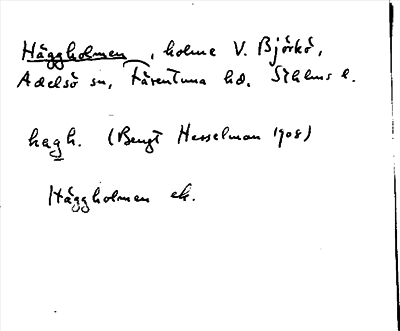 Häggholmen, holme V. Björkö,
Adelsö sn, Färentuna hd. Sthlms l.
hagh. (Bengt Hesselman 1908)
Häggholmen ek.